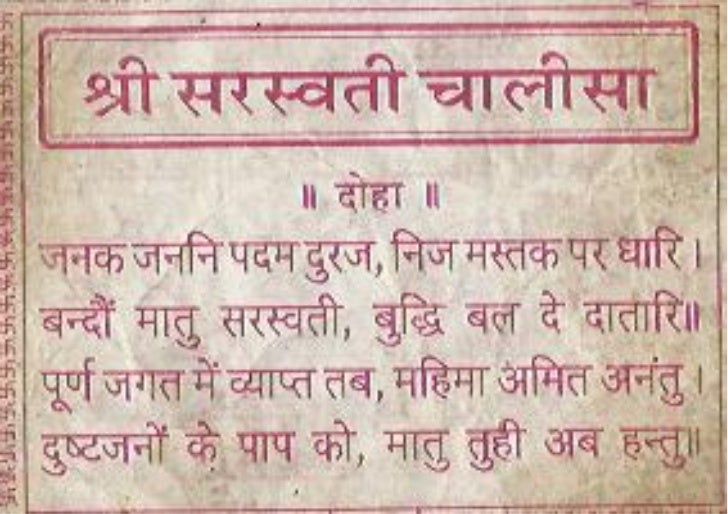 श्री सरस्वती चालीसा
॥ दोहा ॥
जनक जननि पदम दुरज, निज मस्तक पर धारि।
बन्दौं मातु सरस्वती, बुद्धि बल दे दातारि॥
पूर्ण जगत में व्याप्त तब, महिमा अमित अनंतु।
दुष्टजनों के पाप को, मातु तुही अब हन्तु॥